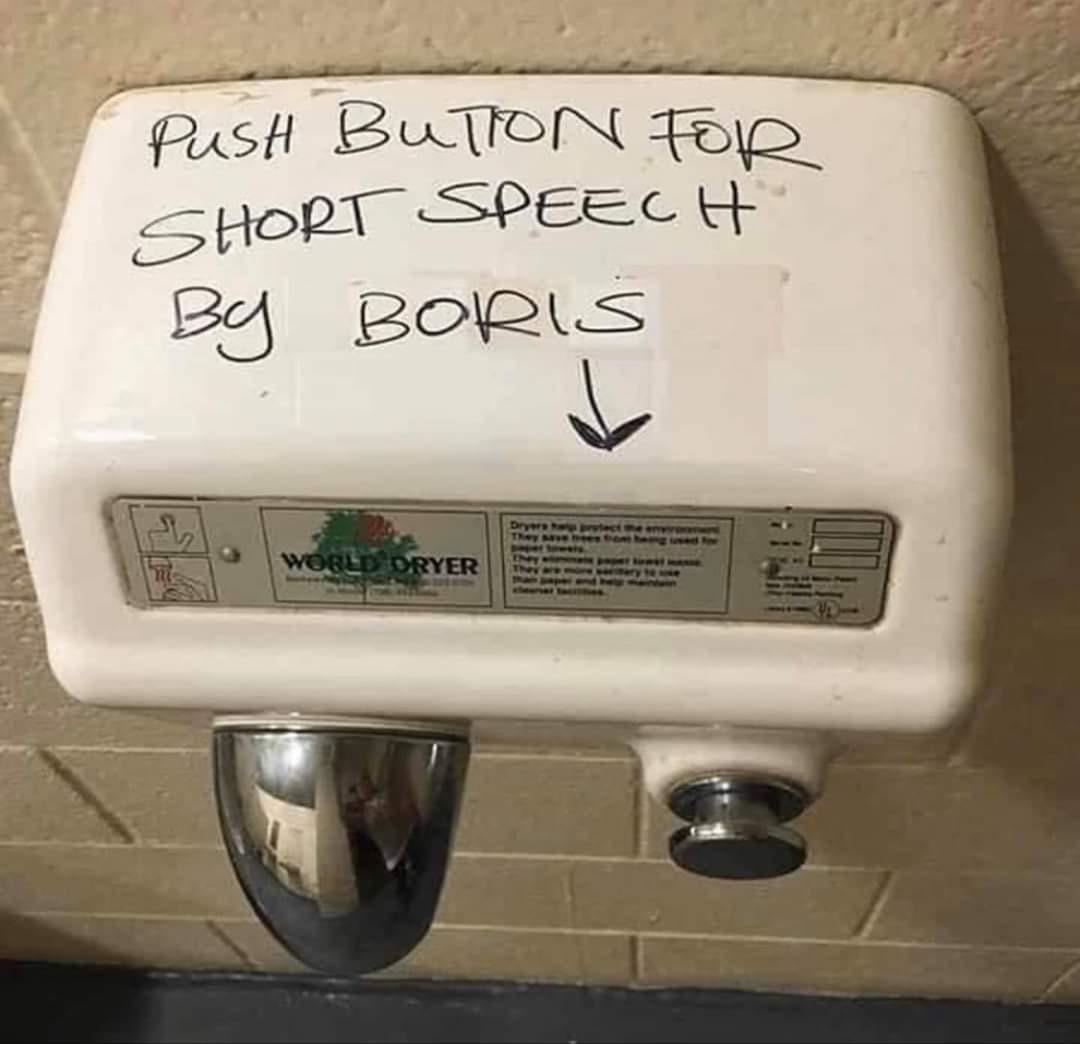 PUSH BUTTON FOR
SHORT SPEECH
By BORIS
WORLD DRYER
Dryers help protect the environment
They save trees from being used for
paper towels.
They eliminate paper towel waste.
They are more sanitary to use
than paper and help maintain
cleaner facilities.
UL